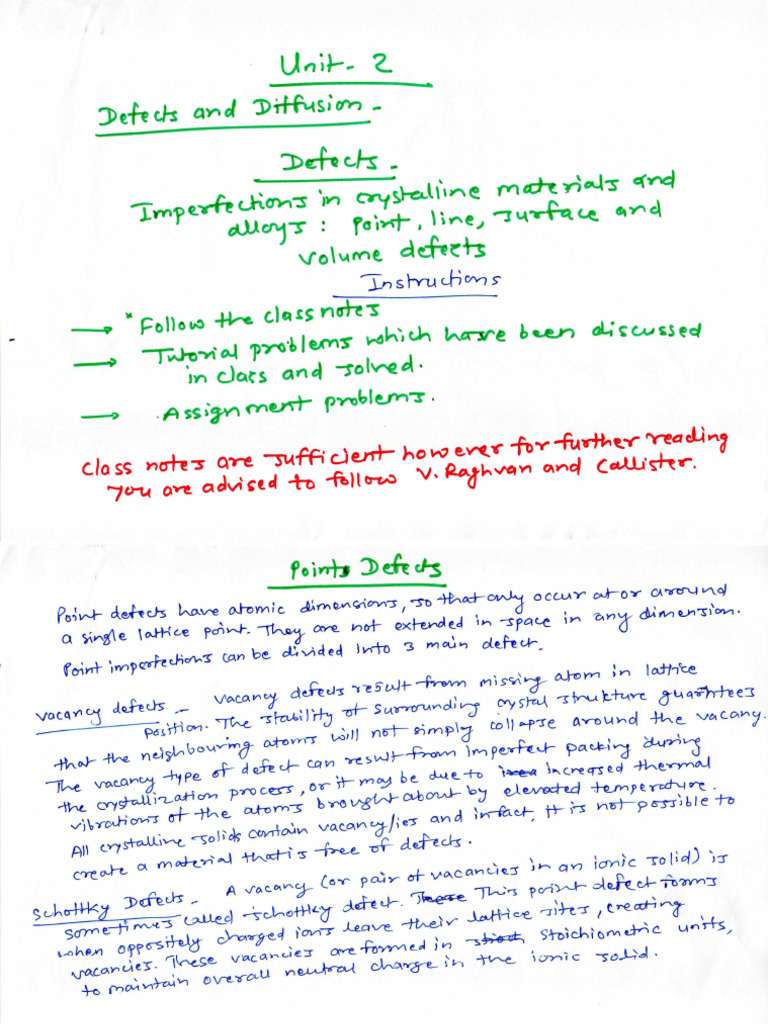 Unit - 2
Defects and Diffusion -
Defects -
Imperfections in crystalline materials and
alloys : Point, line, surface and
volume defects
Instructions
→ * Follow the class notes
→ Tutorial problems which have been discussed
in class and solved.
→ . Assignment problems.
Class notes are sufficient however for further reading
you are advised to follow V. Raghvan and Callister.
Points Defects
Point defects have atomic dimensions, so that only occur at or around
a single lattice point. They are not extended in space in any dimension.
Point imperfections can be divided into 3 main defect.
Vacancy defects - Vacancy defects result from missing atom in lattice
position. The stability of surrounding crystal strukture guarantees
that the neighbouring atoms will not simply collapse around the vacany.
The vacancy type of defect can result from imperfect packing during
the crystallization process, or it may be due to increased thermal
vibrations of the atoms brought about by elevated temperature.
All crystalline solids contain vacancy/ies and infact, It is not possible to
create a material that is free of defects.
Schottky Defects - A vacancy (or pair of vacancies in an ionic solid) is
sometimes called schottky defect. This point defect forms
when oppositely charged ions leave their lattice sites, creating
vacancies. These vacancies are formed in stoichiometric units,
to maintain overall neutral charge in the ionic solid.